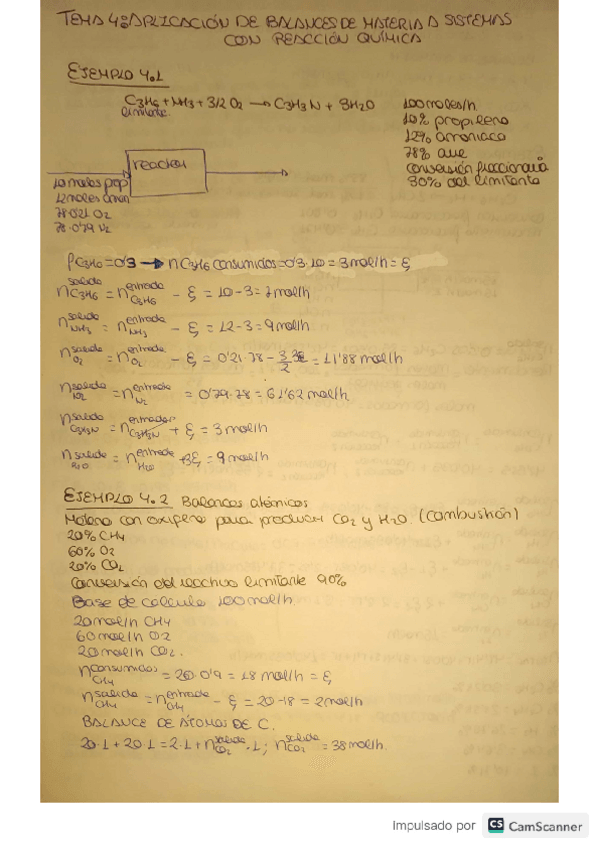 TEMA 4: APLICACIÓN DE BALANCES DE MATERIA A SISTEMAS
CON REACCIÓN QUÍMICA
EJEMPLO 4.1
C3H6 + NH3 + 3/2 O2 → C3H3N + 3H2O
limitante
100 moles/h
10% propileno
12% amoniaco
78% aire
conversión fraccionaria
30% del limitante
reactor
10 moles prop
12 moles amon
78·0'21 O2
78·0'79 N2
fC3H6 = 0'3 → nC3H6 consumidos = 0'3·10 = 3mol/h = ξ
n salida C3H6 = n entrada C3H6 - ξ = 10-3 = 7mol/h
n salida NH3 = n entrada NH3 - ξ = 12-3 = 9mol/h
n salida O2 = n entrada O2 - ξ = 0'21·78 - = 11'88 mol/h
n salida N2 = n entrada N2 = 0'79·78 = 61'62 mol/h
n salida C3H3N = n entrada C3H3N + ξ = 3mol/h
n salida H2O = n entrada H2O + 3ξ = 9mol/h
EJEMPLO 4.2 Balances atómicos
Metano con oxígeno para producir CO2 y H2O. (Combustión)
20% CH4
60% O2
20% CO2
Conversión del reactivo limitante 90%
Base de cálculo 100mol/h
20mol/h CH4
60mol/h O2
20mol/h CO2.
n consumidos CH4 = 20·0'9 = 18 mol/h = ξ
n salida CH4 = n entrada CH4 - ξ = 20-18 = 2mol/h
BALANCE DE ÁTOMOS DE C.
20·1 + 20·1 = 2·1 + n salida CO2·1; n salida CO2 = 38mol/h.
Impulsado por CS CamScanner